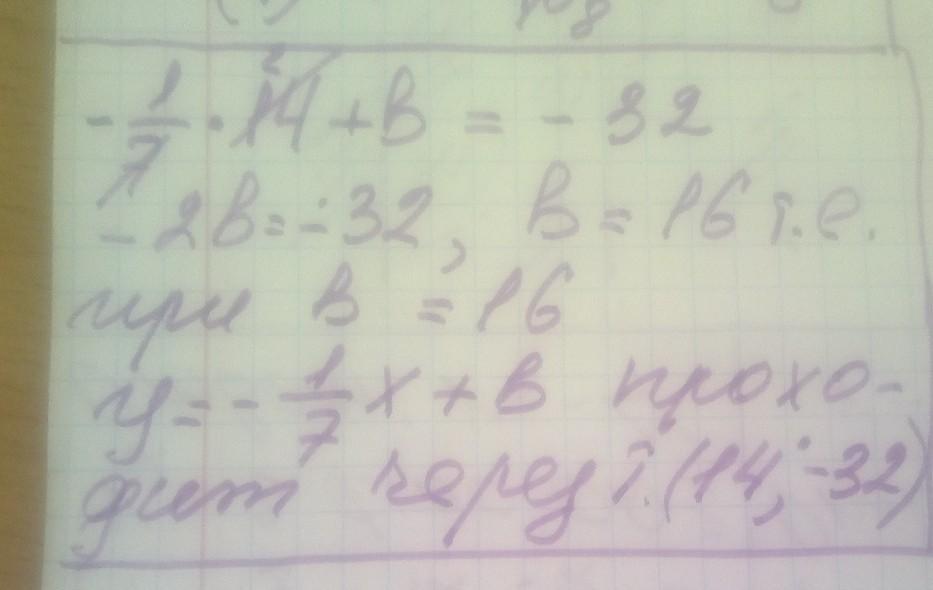 -1/7 · 14 + в = - 32
- 2в = - 32, в = 16 т.е.
при в = 16
у = - 1/7 х + в прохо-
дит через т. (14; -32)